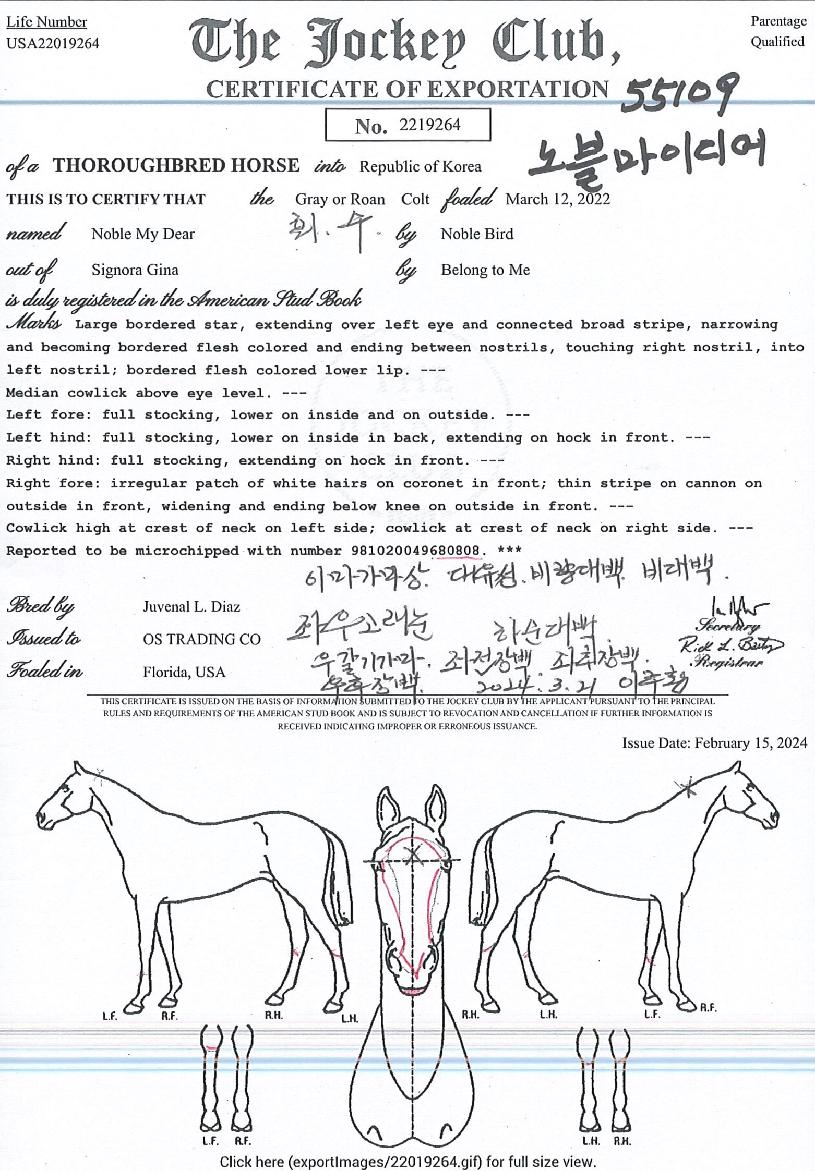 Life Number
USA22019264
Parentage
Qualified
The Jockey Club,
CERTIFICATE OF EXPORTATION
55109
No. 2219264
노블마이디어
of a THOROUGHBRED HORSE into Republic of Korea
THIS IS TO CERTIFY THAT the Gray or Roan Colt foaled March 12, 2022
named Noble My Dear by Noble Bird
out of Signora Gina by Belong to Me
is duly registered in the American Stud Book
Marks Large bordered star, extending over left eye and connected broad stripe, narrowing
and becoming bordered flesh colored and ending between nostrils, touching right nostril, into
left nostril; bordered flesh colored lower lip. ---
Median cowlick above eye level. ---
Left fore: full stocking, lower on inside and on outside. ---
Left hind: full stocking, lower on inside in back, extending on hock in front. ---
Right hind: full stocking, extending on hock in front. ---
Right fore: irregular patch of white hairs on coronet in front; thin stripe on cannon on
outside in front, widening and ending below knee on outside in front. ---
Cowlick high at crest of neck on left side; cowlick at crest of neck on right side. ---
Reported to be microchipped with number 981020049680808. ***
이마가마상. 대유성. 비량대백. 비대백.
Bred by Juvenal L. Diaz
Secretary
Issued to OS TRADING CO 하순대백
Registrar
Foaled in Florida, USA 좌전장백 좌후장백.
우후장백. 2024. 3. 21
THIS CERTIFICATE IS ISSUED ON THE BASIS OF INFORMATION SUBMITTED TO THE JOCKEY CLUB BY THE APPLICANT PURSUANT TO THE PRINCIPAL
RULES AND REQUIREMENTS OF THE AMERICAN STUD BOOK AND IS SUBJECT TO REVOCATION AND CANCELLATION IF FURTHER INFORMATION IS
RECEIVED INDICATING IMPROPER OR ERRONEOUS ISSUANCE.
Issue Date: February 15, 2024
L.F. R.F. R.H. L.H. R.H. L.H. L.F. R.F.
L.F. R.F. L.H. R.H.
Click here (exportImages/22019264.gif) for full size view.